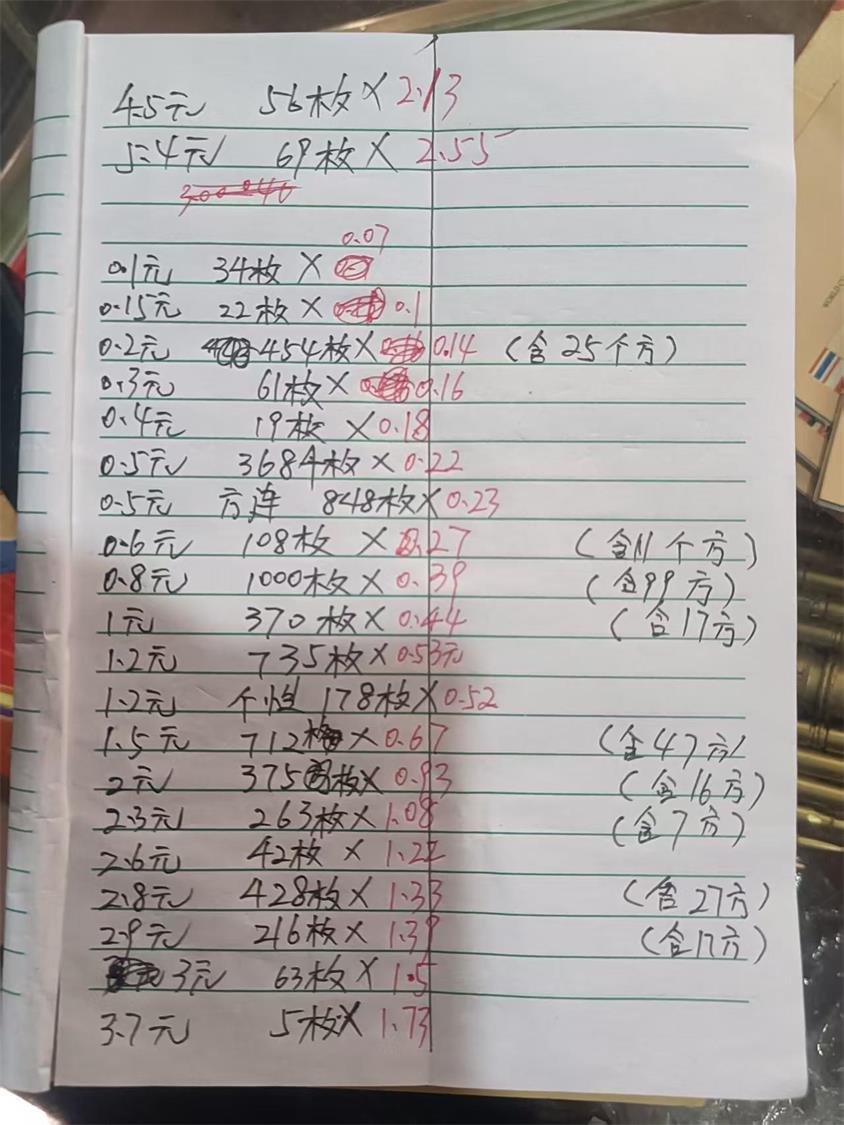 4.5元 56枚×2.13
5.4元 69枚×2.55
0.07
0.1元 34枚×
0.15元 22枚× 0.1
0.2元 454枚×0.14 (含25个方)
0.3元 61枚×0.16
0.4元 19枚×0.18
0.5元 3684枚×0.22
0.5元 方连 848枚×0.23
0.6元 108枚×0.27 (含11个方)
0.8元 1000枚×0.39 (含99方)
1元 370枚×0.44 (含17方)
1.2元 735枚×0.53元
1.2元 个性 178枚×0.52
1.5元 712枚×0.67 (含47方)
2元 375枚×0.93 (含16方)
2.3元 263枚×1.08 (含7方)
2.6元 42枚×1.22
2.8元 428枚×1.33 (含27方)
2.9元 216枚×1.39 (含17方)
3元 63枚×1.5
3.7元 5枚×1.73